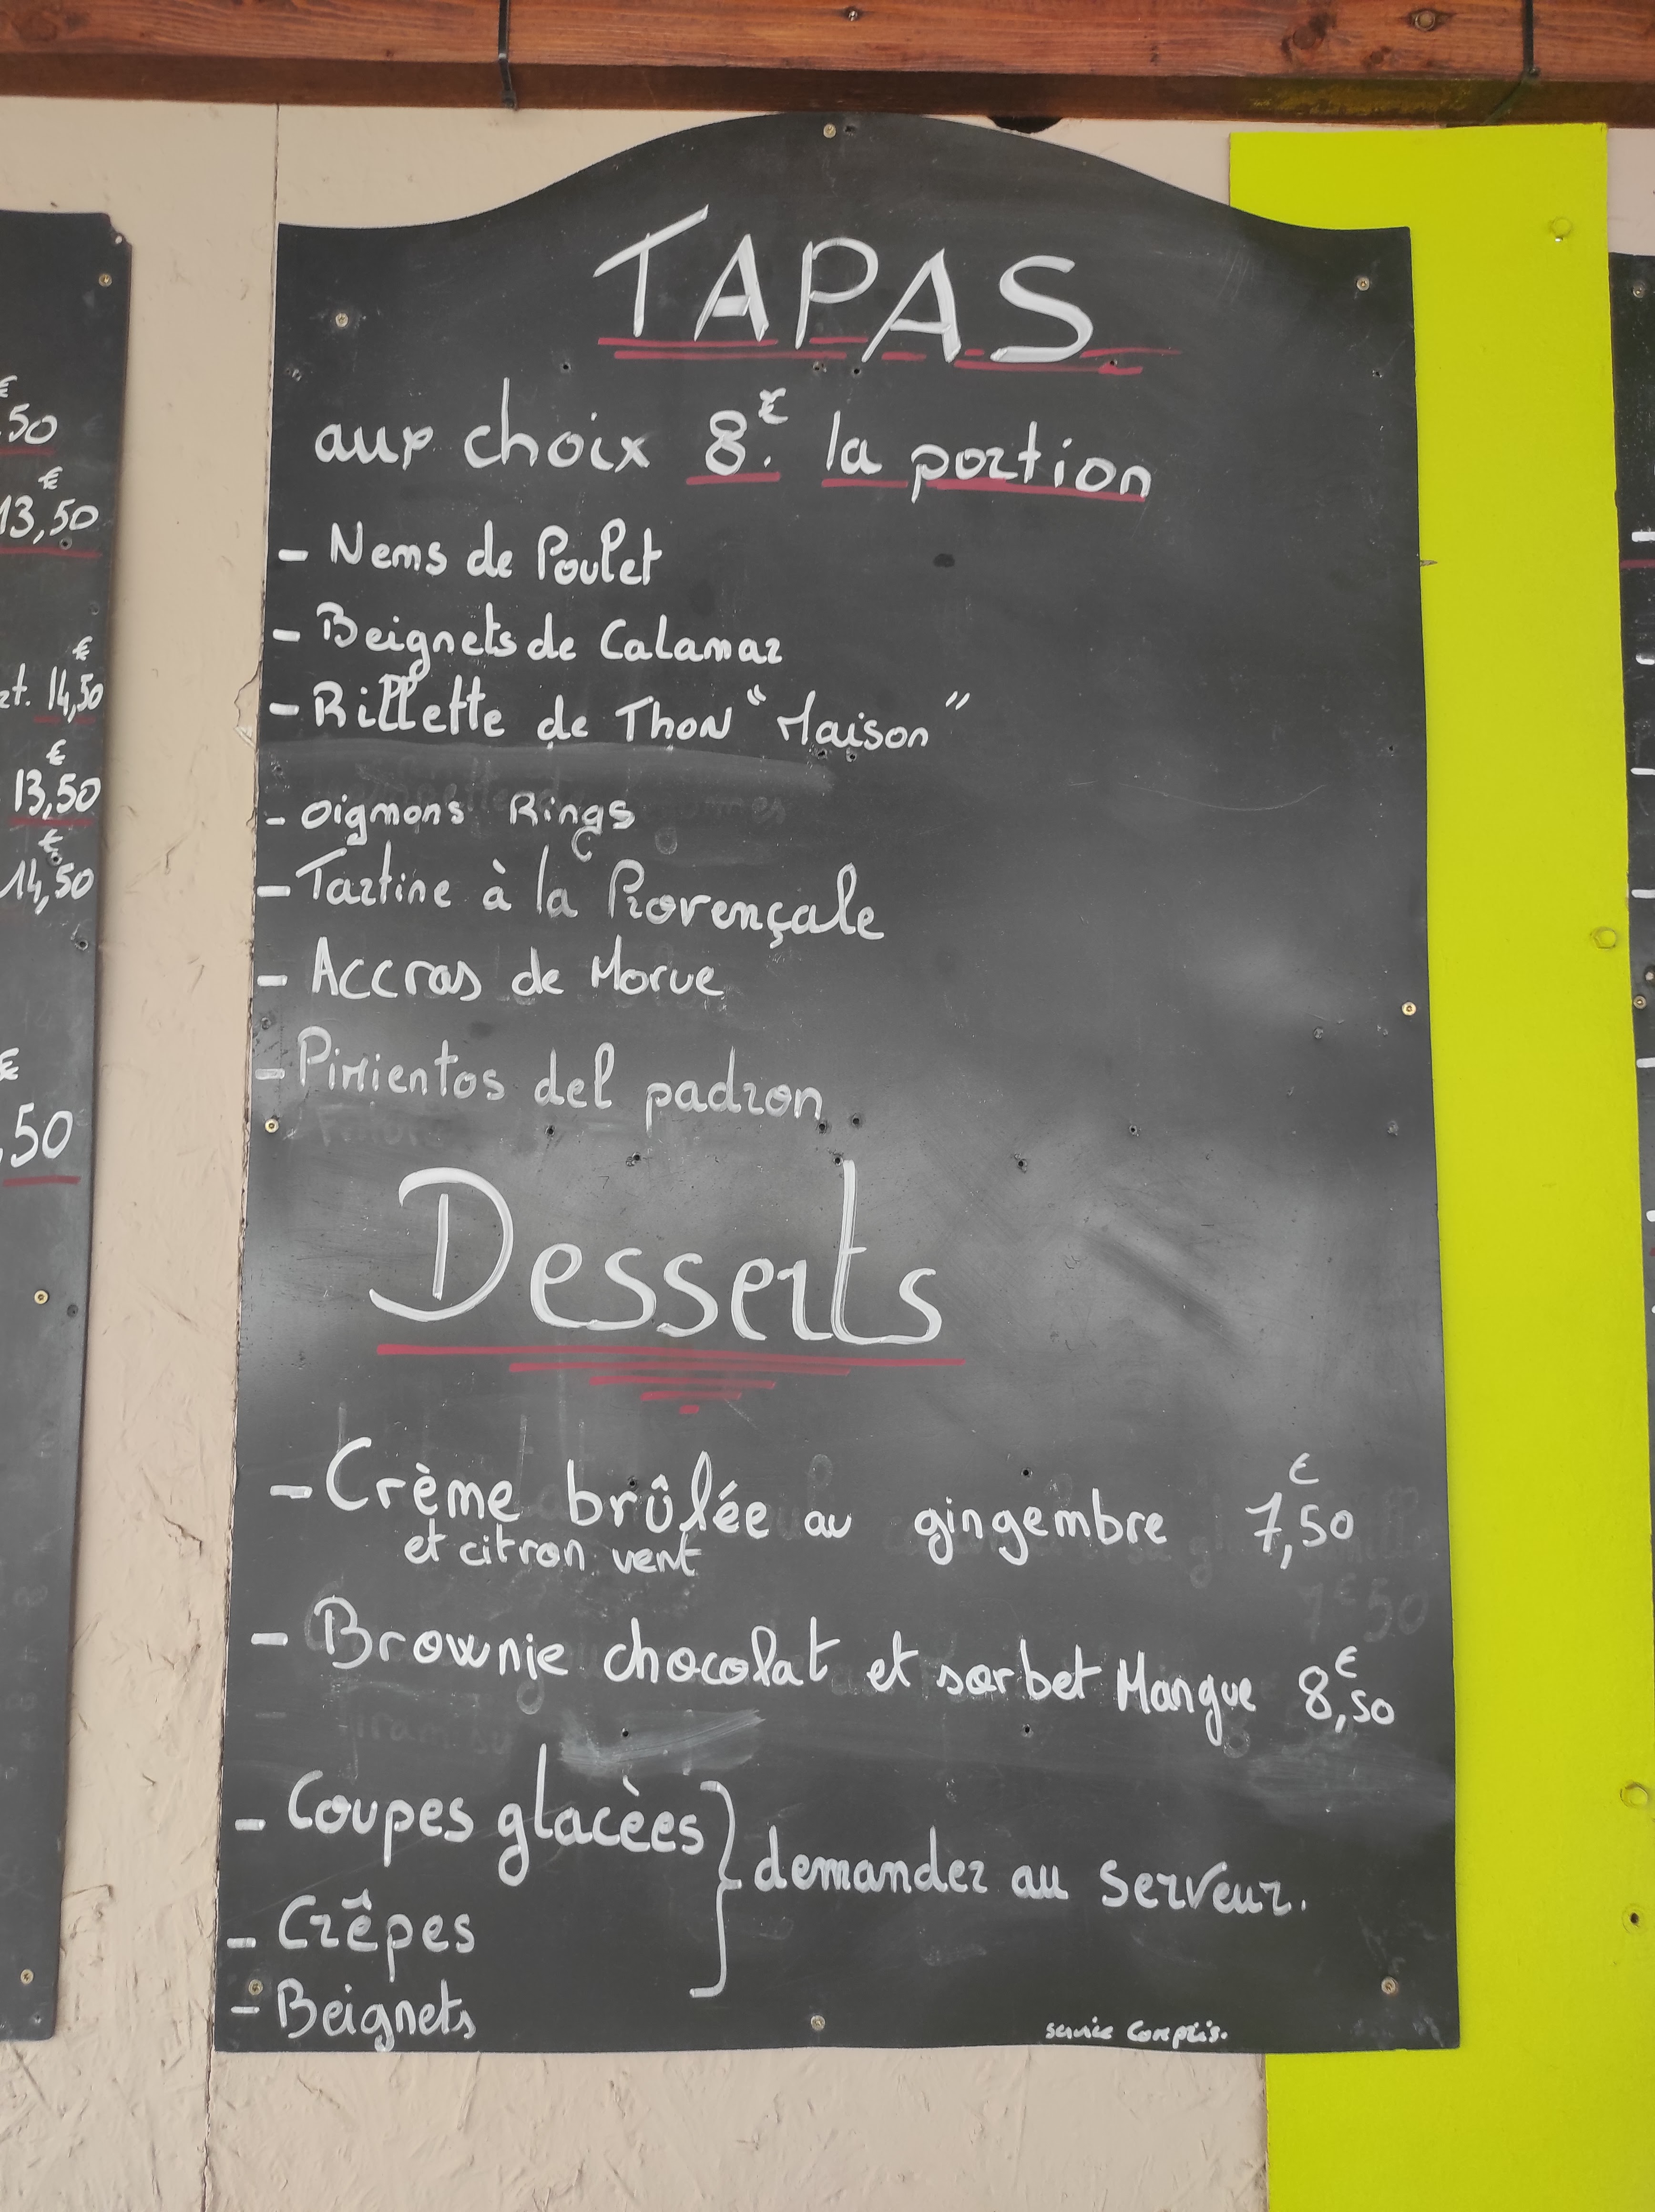 €
.50
€
13,50
€
rt. 14,50
€
13,50
€
14,50
€
,50
TAPAS
aux choix 8.€ la portion
- Nems de Poulet
- Beignets de Calamar
- Rillette de Thon "Maison"
- oignons Rings
- Tartine à la Provençale
- Accras de Morue
- Pimientos del padron
Desserts
- Crème brûlée au gingembre 7,50€
et citron vert
- Brownie chocolat et sorbet Mangue 8,50€
- Coupes glacèes
demandez au serveur.
- Crêpes
- Beignets
service Compris.